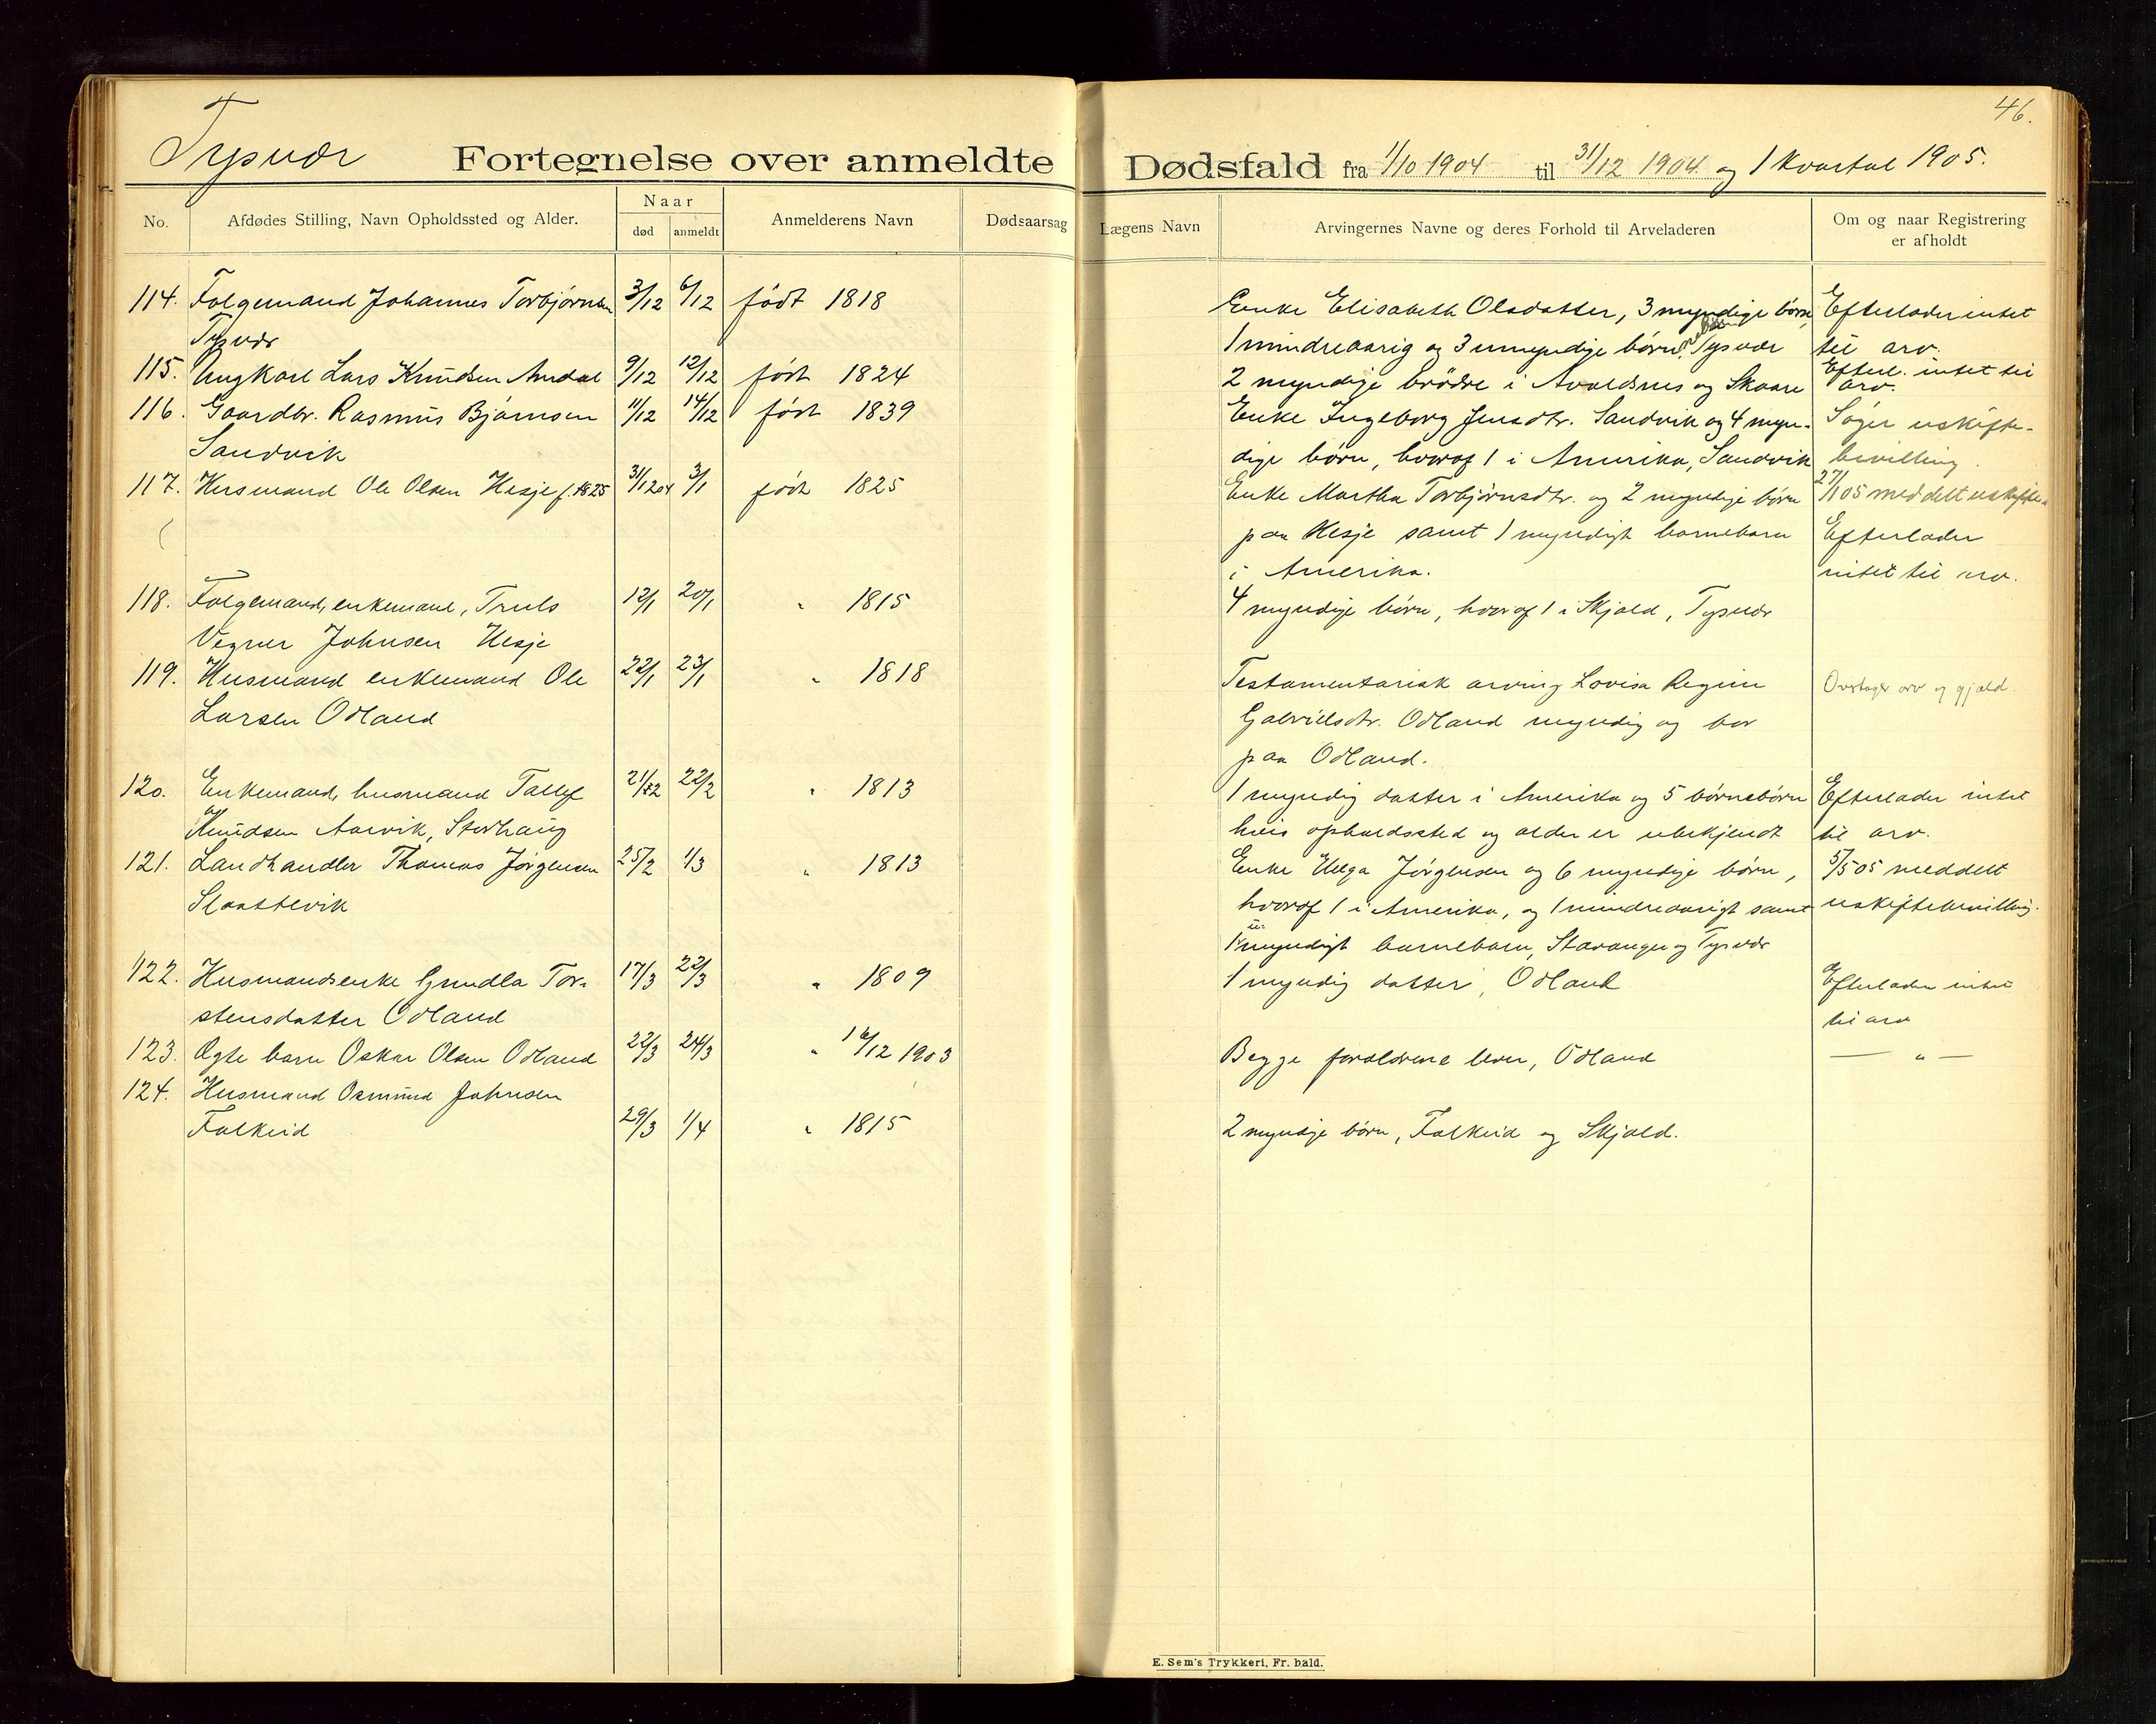 46.
Tysvær Fortegnelse over anmeldte Dødsfald fra 1/10 1904 til 31/12 1904 og 1 kvartal 1905.
No. Afdødes Stilling, Navn Opholdssted og Alder. Naar Anmelderens Navn Dødsaarsag Lægens Navn Arvingernes Navne og deres Forhold til Arveladeren Om og naar Registrering
død anmeldt er afholdt
114. Folgemand Johannes Torbjørnsen 3/12 6/12 født 1818 Enke Elisabeth Olsdatter, 3 myndige børn, Efterlader intet
Tysvær 1 mindreaarig og 3 umyndige børn, Tysvær til arv.
115. Ungkarl Lars Knudsen Amdal 9/12 12/12 født 1824 2 myndige brødre i Avaldsnes og Skaare Efterl. intet til
arv.
116. Gaardbr. Rasmus Bjørnsen 11/12 14/12 født 1839 Enke Ingeborg Jensdtr. Sandvik og 4 myn- Søger uskifte-
Sandvik dige børn, hvoraf 1 i Amerika, Sandvik bevilling.
117. Husmand Ole Olsen Hesje f. 1825 31/12 04 3/1 født 1825 Enke Martha Torbjørnsdtr. og 2 myndige børn 27/1 05 meddelt uskifte-
paa Hesje samt 1 myndigt barnebarn Efterlader
i Amerika. intet til arv.
118. Folgemand, enkemand, Truls 12/1 20/1 " 1815 4 myndige børn, hvoraf 1 i Skjold, Tysvær
Vegner Johnsen Hesje
119. Husmand enkemand Ole 22/1 23/1 " 1818 Testamentarisk arving Lovisa Regine Overtager arv og gjæld.
Larsen Odland Gabrielsdtr. Odland myndig og bor
paa Odland.
120. Enkemand, husmand Tollef 21/2 22/2 " 1813 1 myndig datter i Amerika og 5 børnebørn Efterlader intet
Knudsen Aarvik, Storhaug hvis opholdssted og alder er ubekjendt til arv.
121. Landhandler Thomas Jørgensen 25/2 1/3 " 1813 Enke Helga Jørgensen og 6 myndige børn, 5/5 05 meddelt
Slaattevik hvoraf 1 i Amerika, og 1 mindreaarigt samt uskiftebevilling.
1 umyndigt barnebarn, Stavanger og Tysvær
122. Husmandsenke Gundla Tor- 17/3 22/3 " 1809 1 myndig datter, Odland Efterlader intet
stensdatter Odland til arv
123. Ægte barn Oskar Olsen Odland 22/3 24/3 " 16/12 1903 Begge forældrene lever, Odland — " —
124. Husmand Osmund Johnsen
Falkeid 29/3 1/4 " 1815 2 myndige børn, Falkeid og Skjold.
E. Sem's Trykkeri, Fr. hald.